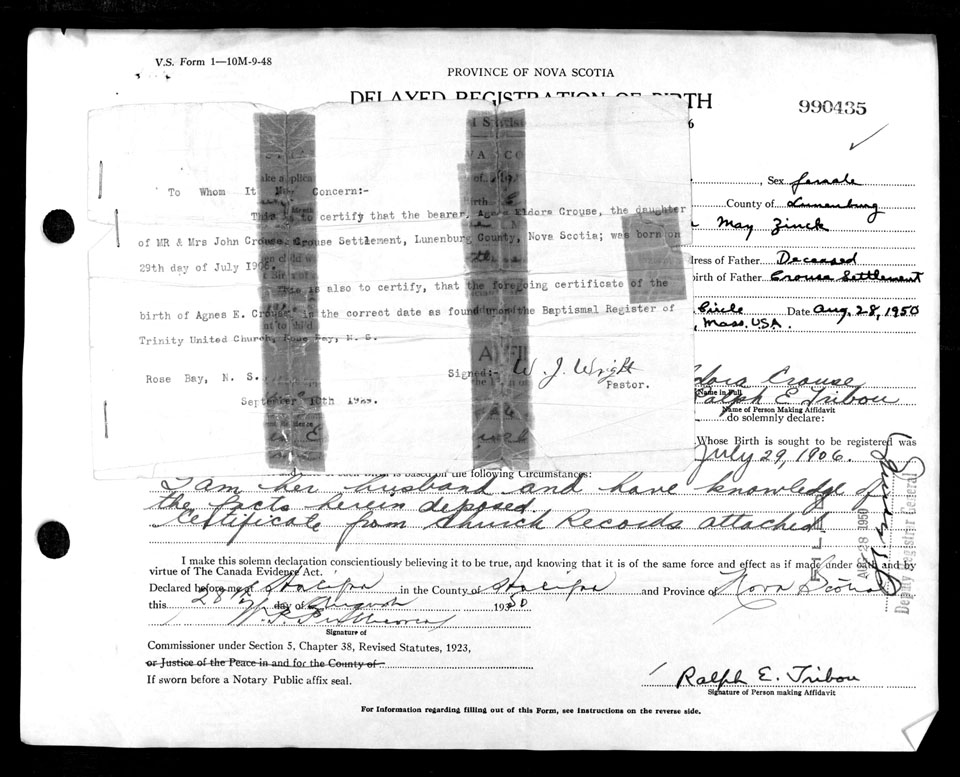 V.S. Form 1—10M-9-48
PROVINCE OF NOVA SCOTIA
DELAYED REGISTRATION OF BIRTH
990435
6
Sex female
County of Lunenburg
May Zinck
dress of Father Deceased
birth of Father Crouse Settlement
Circle Date Aug. 28, 1950
, Mass. USA.
To Whom It May Concern:-
This is to certify that the bearer, Agnes Eldora Crouse, the daughter
of MR & Mrs John Crouse, Crouse Settlement, Lunenburg County, Nova Scotia; was born on
29th day of July 1906.
This is also to certify, that the foregoing certificate of the
birth of Agnes E. Crouse is the correct date as found upon the Baptismal Register of
Trinity United Church, Rose Bay, N. S.
Signed:- W. J. Wright
Pastor.
Rose Bay, N. S.
September 10th
dora Crouse
Name in Full
Ralph E Tribou
Name of Person Making Affidavit
do solemnly declare:
Whose Birth is sought to be registered was
July 29, 1906.
of such birth is based on the following Circumstances:
I am her husband and have knowledge of
the facts herein deposed.
Certificate from Church Records attached
FILED
AUG 28 1950
Deputy Registrar General
I make this solemn declaration conscientiously believing it to be true, and knowing that it is of the same force and effect as if made under oath and by
virtue of The Canada Evidence Act.
Declared before me at Halifax in the County of Halifax and Province of Nova Scotia
this 28th day of August 1950
Signature of
Commissioner under Section 5, Chapter 38, Revised Statutes, 1923,
or Justice of the Peace in and for the County of
If sworn before a Notary Public affix seal.
Ralph E. Tribou
Signature of Person making Affidavit
For Information regarding filling out of this Form, see Instructions on the reverse side.